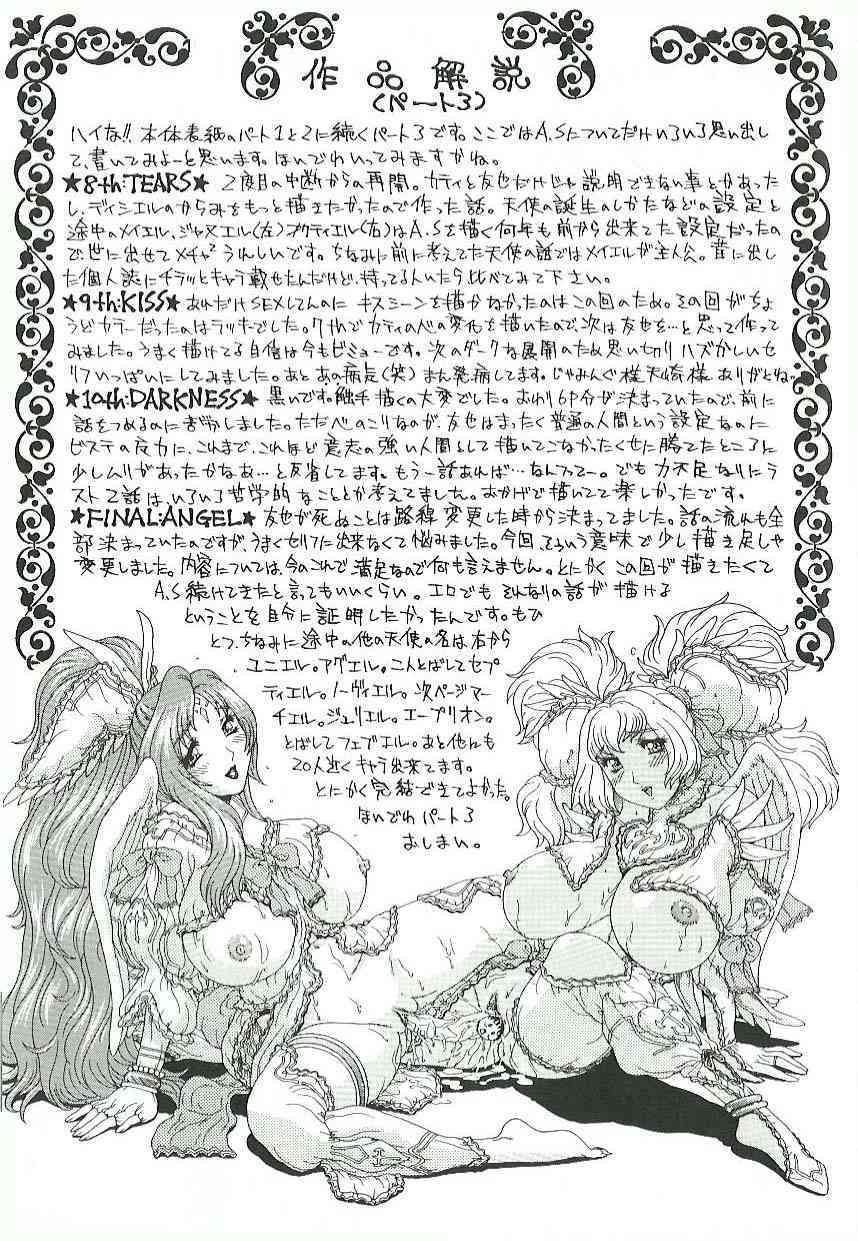 作品解説
(パート3)
ハイな!!本体表紙のパート1と2に続くパート3です。ここではA.Sについてだけいろいろ思い出し
て、書いてみよーと思います。ほいでわいってみますかね。
★8th:TEARS★ 2度目の中断からの再開。カティと友也だけじゃ説明できない事とかあった
し、ディシエルのからみをもっと描きたかったので作った話。天使の誕生のしかたなどの設定と
途中のメイエル、ジャヌエル(左)オクティエル(右)はA.Sを描く何年も前から出来てた設定だったの
で、世に出せてメチャ²うれしいです。ちなみに前に考えてた天使の話ではメイエルが主人公。昔に出し
た個人誌にチラッとキャラ載せたんだけど、持ってる人いたら比べてみて下さい。
★9th:KISS★ あれだけSEXしてんのに キスシーンを描かなかったのはこの回のため。その回がちょ
うどカラーだったのはラッキでした。7thでカティの心の変化を描いたので、次は友也を…と思って作って
みました。うまく描けてる自信は今もビミョーです。次のダークな展開のため思い切りハズかしいセ
リフいっぱいにしてみました。あとあの病気(笑)まん発病してます。じゃみんぐ様 天崎様 ありがとね
★10th:DARKNESS★ 黒いです。触手描くの大変でした。おわり6P分が決まっていたので、前に
話をつめるのに苦労しました。ただ心のこりなのが、友也はまったく普通の人間という設定なのに
ビステの反力に、これまで、これほど意志の強い人間として描いてこなかったくせに勝てたところに
少しムリがあったかなあ…と反省してます。もう一話あれば…なんつってー。でも力不足なりにラ
スト2話は、いろいろ哲学的なこととか考えてました。おかげで描いてて楽しかったです。
★FINAL:ANGEL★ 友也が死ぬことは路線変更した時から決まってました。話の流れも全
部決まっていたのですが、うまくセリフに出来なくて悩みました。今回、そういう意味で少し描き足しや
変更しました。内容については、今のこれで満足なので何も言えません。とにかくこの回が描きたくて
A.S続けてきたと言ってもいいくらい。エロでもそれなりの話が描ける
ということを自分に証明したかったんです。もひ
とつ、ちなみに途中の他の天使の名は右から
ユニエル。アグエル。こんとばしてセプ
ティエル。ノーヴィエル。次ページマー
チェル。ジュリエル。エープリオン。
とばしてフェブエル。あと他にも
20人近くキャラ出来てます。
とにかく完結できてよかった。
ほいでわパート3
おしまい。